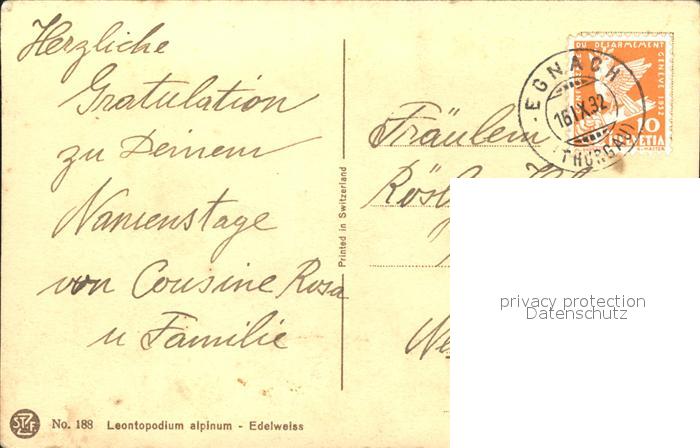 Herzliche
Gratulation
zu Deinem
Namenstage
von Cousine Rosa
u Familie
No. 188 Leontopodium alpinum - Edelweiss
Printed in Switzerland
DU DÉSARMEMENT
GENÈVE 1932
10
HELVETIA
EGNACH
16.IX.32
(THURGAU)
Fräulein
privacy protection
Datenschutz